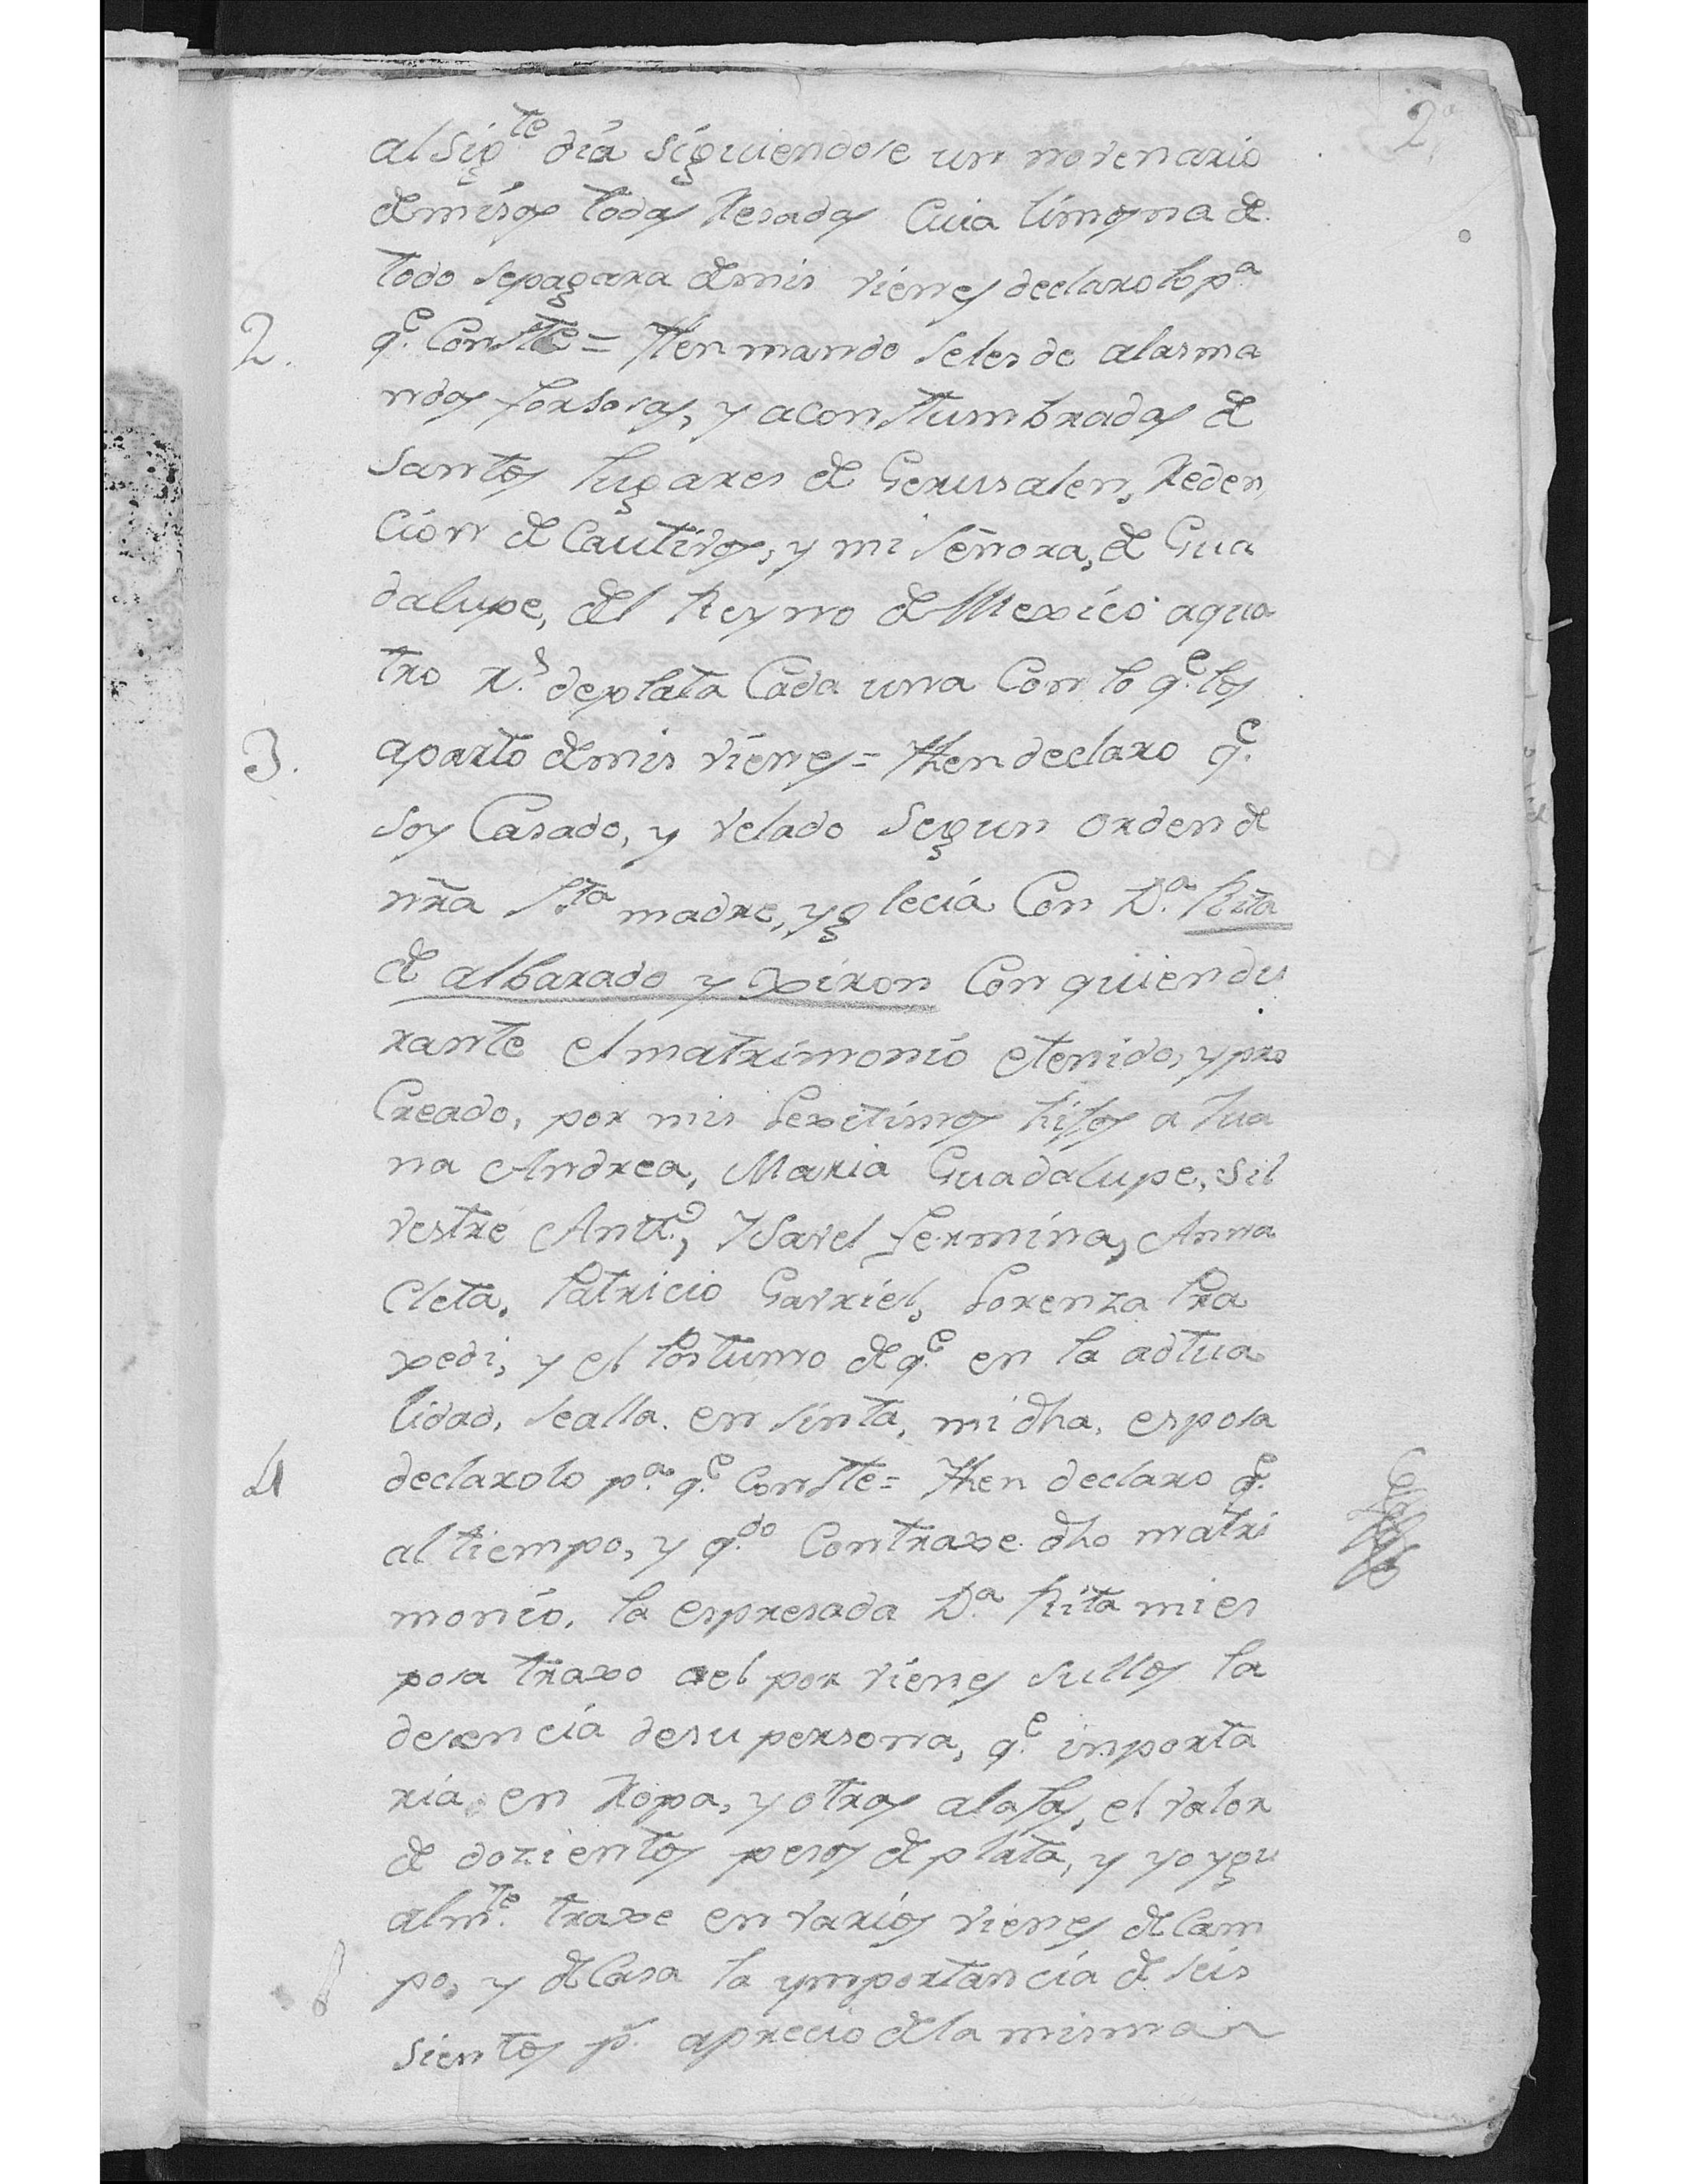 2
al sigte dia siguiendose un novenario
de misas todas Resadas Cuia limosna de
todo se pagara de mis vienes declarolo pa
2. qe Conste = Iten mando se les de a las ma
ndas forsosas, y aconstumbradas de
Santos lugares de Gerusalen, Reden
Cion de Cautivos, y mi señora, de Gua
dalupe, del Reyno de Mexico a qua
tro Rs de plata Cada una Con lo qe los
3. aparto de mis vienes = Iten declaro qe
soy Casado, y velado Segun orden de
nra Sta madre, yglecia Con Da Rita
de albarado y Xiron Con quien du
rante el matrimonio e tenido, y pro
Creado, por mis Lexitimos hijos a Jua
na Andrea, Maria Guadalupe, Sil
vestre Anto, Ysavel fermina, Anna
Cleta, Patricio Gavriel, Lorenza Pra
xedi, y el Postumo de qe en la actua
lidad, se alla en sinta, mi dha, esposa
4 declarolo pa qe Conste = Iten declaro qe
al tiempo, y qdo Contraxe dho matri
monio, la espresada Da Rita mi es
posa traxo a el por vienes sullos la
desencia de su persona, qe inporta
ria en Ropa, y otras alajas, el valor
de dozientos pesos de plata, y yo ygu
almte traxe en varios vienes de Cam
po, y de Casa la ymportancia de seis
sientos ps aprecio de la misma